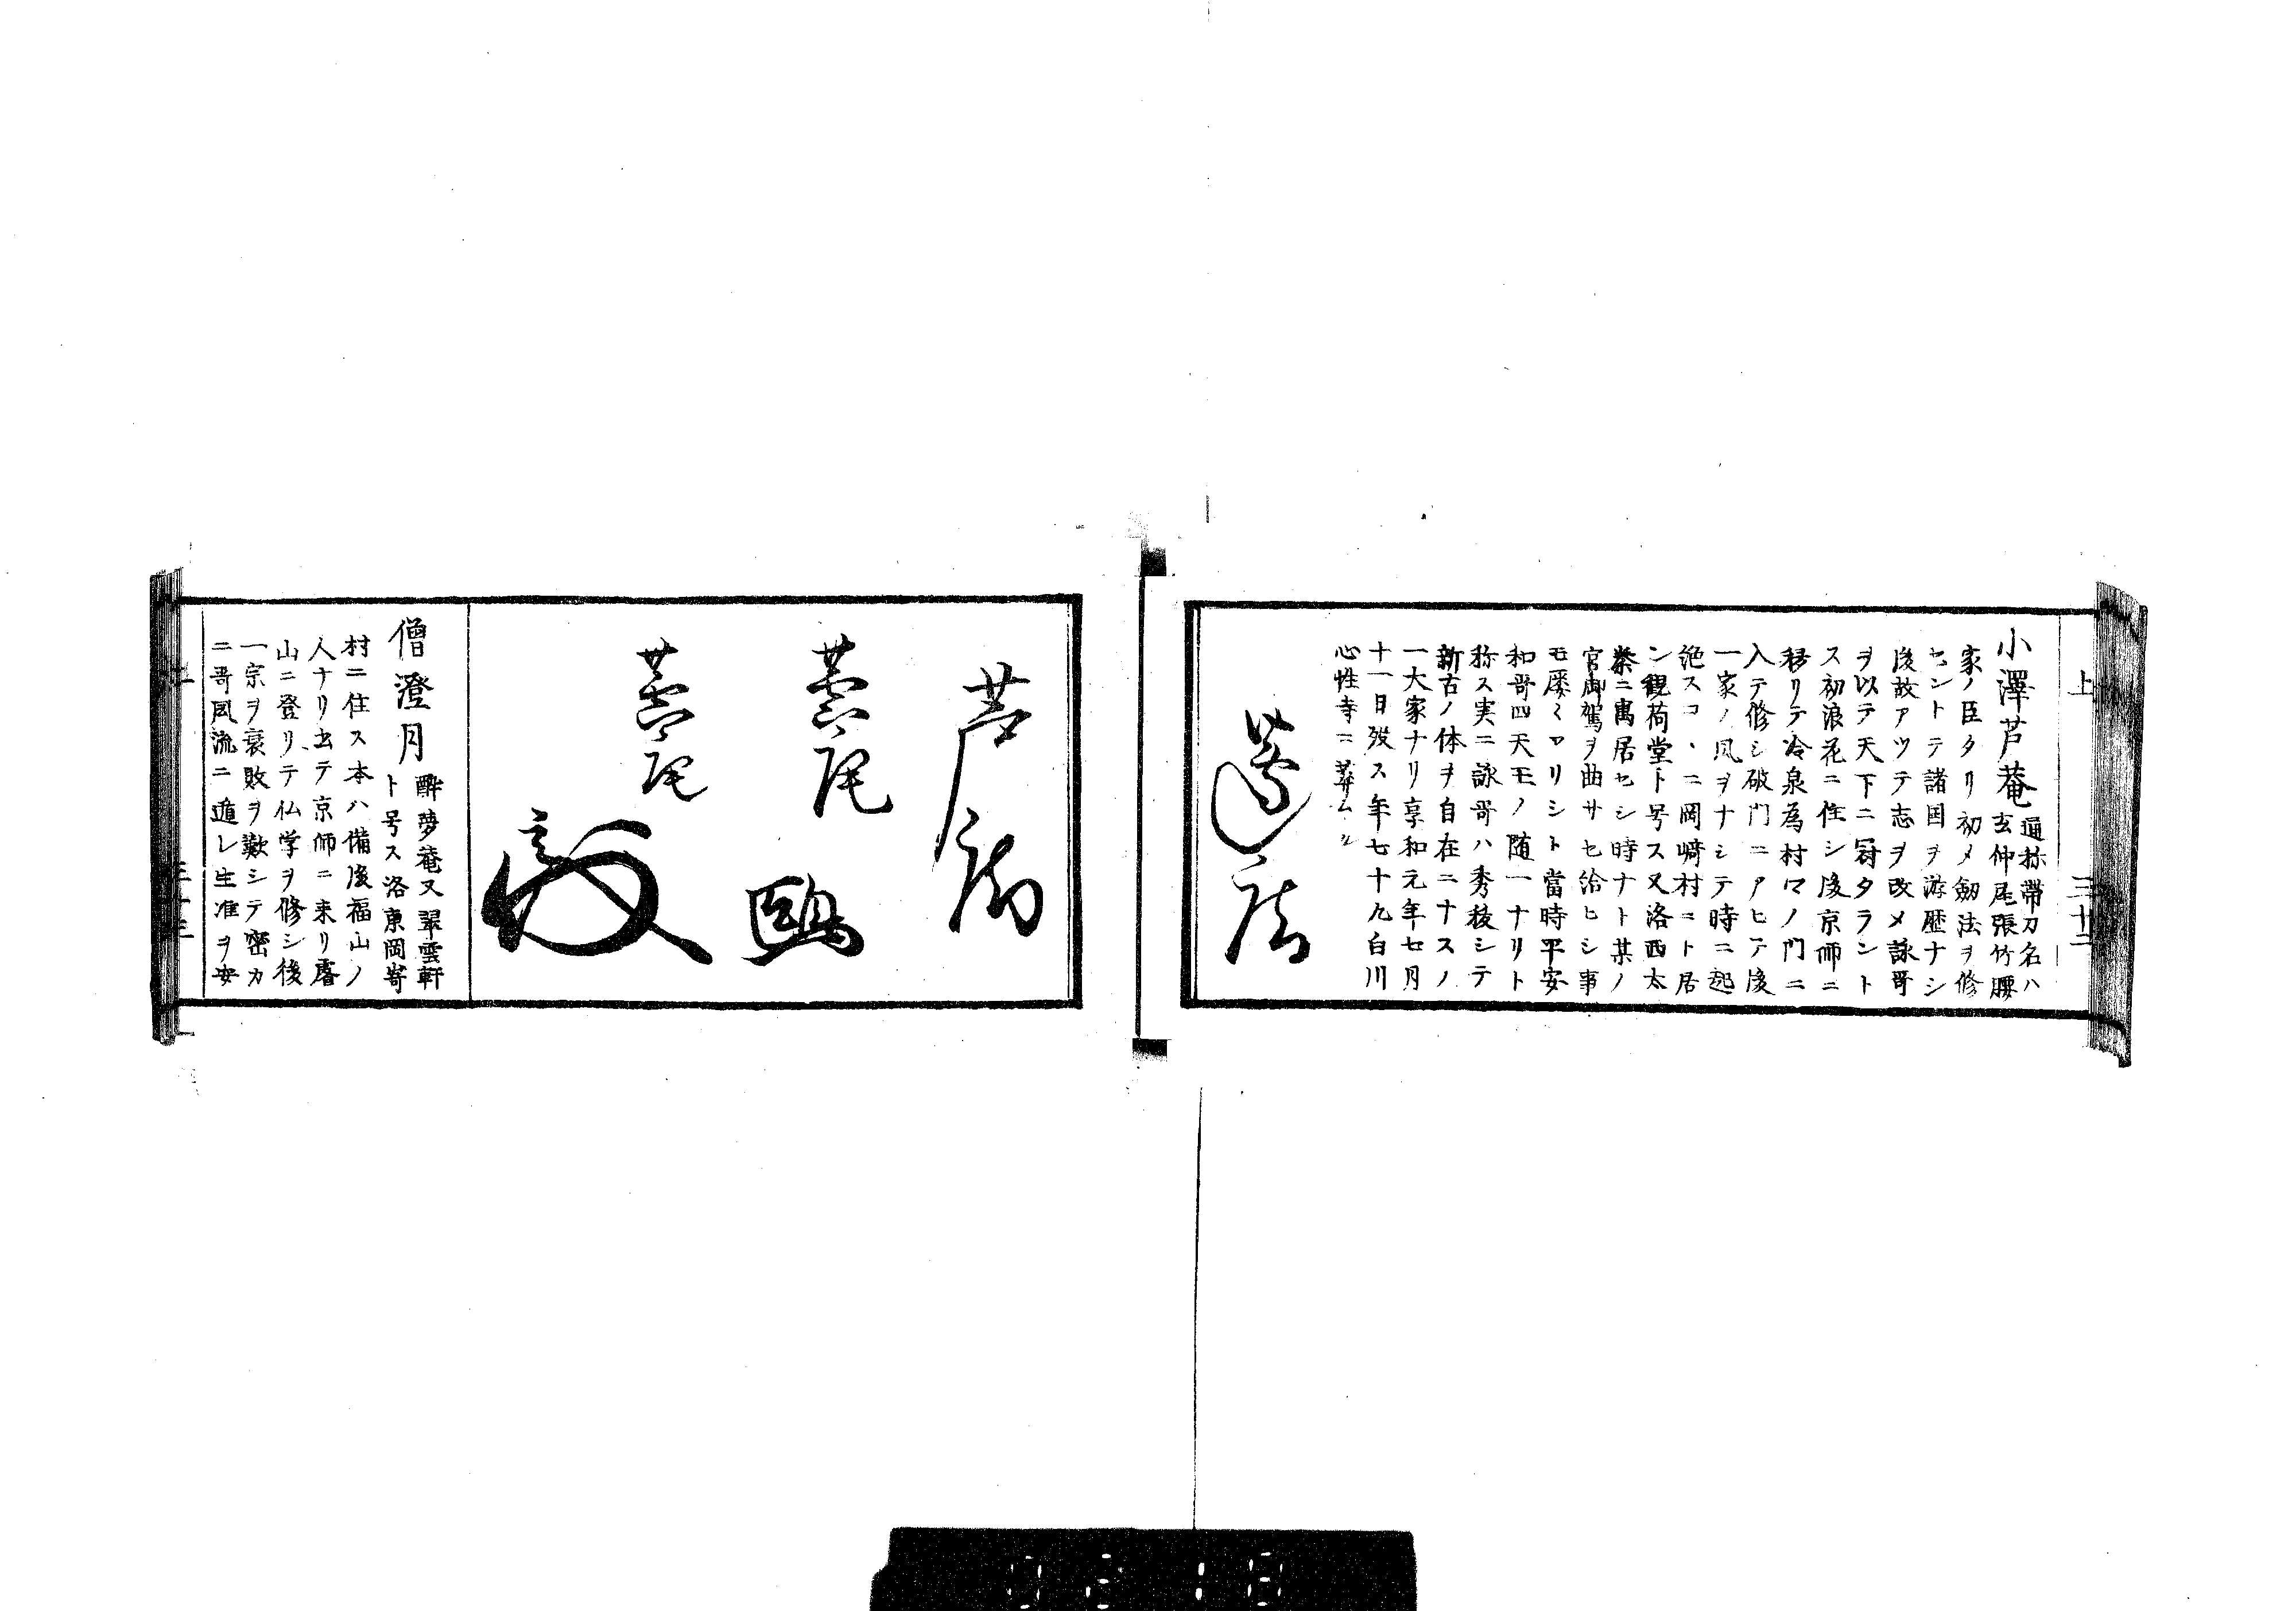 上
三十二
小澤芦菴
通称帯刀名ハ
玄仲尾張竹腰
家ノ臣タリ初メ劔法ヲ修
セントテ諸国ヲ游歴ナシ
後故アツテ志ヲ改メ詠哥
ヲ以テ天下ニ冠タラント
ス初浪花ニ住シ後京師ニ
移リテ冷泉為村マノ門ニ
入テ修シ破門ニアヒテ後
一家ノ風ヲナシテ時ニ起
絶スコヽニ岡崎村ニト居
ン観荷堂ト号ス又洛西太
秦ニ寓居セシ時ナト某ノ
官御駕ヲ曲サセ給ヒシ事
モ屡〻アリシト當時平安
和哥四天王ノ随一ナリト
称ス実ニ詠哥ハ秀抜シテ
新古ノ体ヲ自在ニナスノ
一大家ナリ享和元年七月
十一日歿ス年七十九白川
心性寺ニ葬ムル
芦
僧澄月
酔夢菴又翠雲軒
ト号ス洛東岡嵜
村ニ住ス本ハ備後福山ノ
人ナリ出テ京師ニ来リ睿
山ニ登リテ仏学ヲ修シ後
一宗ヲ衰敗ヲ歎シテ密カ
ニ哥風流ニ遁レ生涯ヲ安